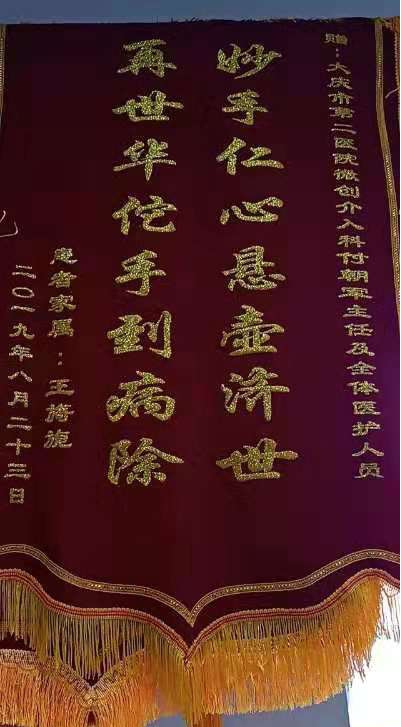 赠：大庆市第二医院微创介入科付朝军主任及全体医护人员
妙手仁心悬壶济世
再世华佗手到病除
患者家属：王椅旎
二〇一九年八月二十三日